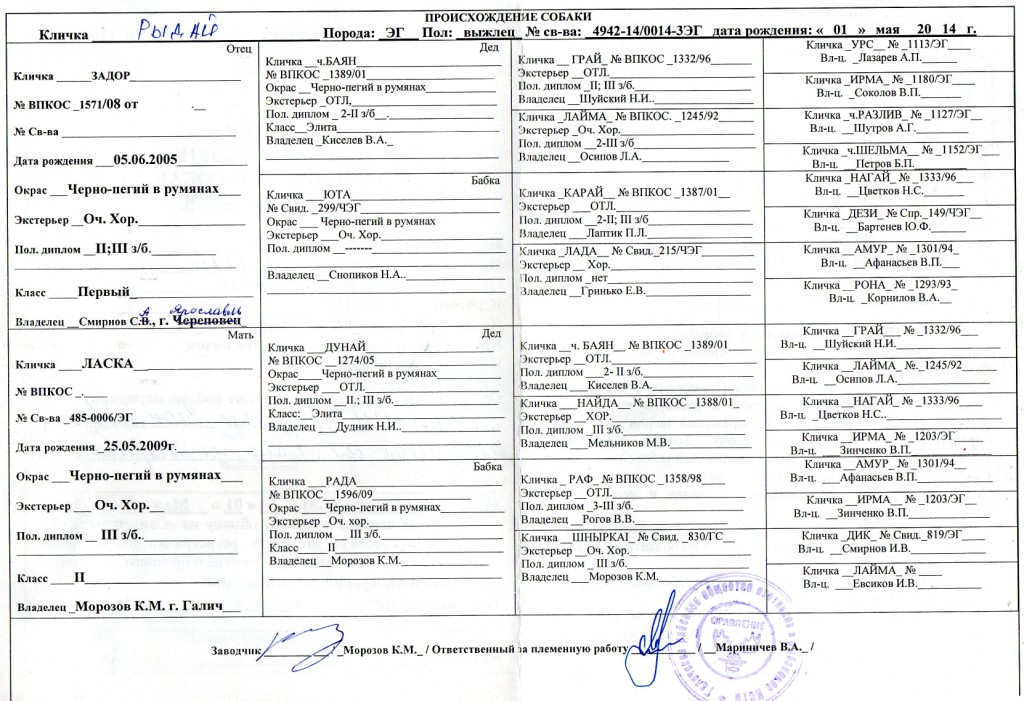 ПРОИСХОЖДЕНИЕ СОБАКИ
Кличка РЫДАЙ Порода: ЭГ Пол: выжлец № св-ва: 4942-14/0014-3ЭГ дата рождения: « 01 » мая 20 14 г.
Отец
Кличка ЗАДОР
№ ВПКОС 1571/08 от
№ Св-ва
Дата рождения 05.06.2005
Окрас Черно-пегий в румянах
Экстерьер Оч. Хор.
Пол. диплом II;III з/б.
Класс Первый
А Ярославль
Владелец Смирнов С.В., г. Череповец
Мать
Кличка ЛАСКА
№ ВПКОС .
№ Св-ва 485-0006/ЭГ
Дата рождения 25.05.2009г.
Окрас Черно-пегий в румянах
Экстерьер Оч. Хор.
Пол. диплом III з/б.
Класс II
Владелец Морозов К.М. г. Галич
Дед
Кличка ч.БАЯН
№ ВПКОС 1389/01
Окрас Черно-пегий в румянах
Экстерьер ОТЛ.
Пол. диплом 2-II з/б .
Класс Элита
Владелец Киселев В.А.
Бабка
Кличка ЮТА
№ Свид. 299/ЧЭГ
Окрас Черно-пегий в румянах
Экстерьер Оч. Хор.
Пол. диплом -------
Владелец Снопиков Н.А..
Дед
Кличка ДУНАЙ
№ ВПКОС 1274/05
Окрас Черно-пегий в румянах
Экстерьер ОТЛ.
Пол. диплом II.; III з/б.
Класс: Элита
Владелец Дудник Н.И..
Бабка
Кличка РАДА
№ ВПКОС 1596/09
Окрас Черно-пегий в румянах
Экстерьер Оч. хор.
Пол. диплом III з/б.
Класс II
Владелец Морозов К.М.
Кличка ГРАЙ № ВПКОС 1332/96
Экстерьер ОТЛ.
Пол. диплом II; III з/б.
Владелец Шуйский Н.И..
Кличка ЛАЙМА № ВПКОС. 1245/92
Экстерьер Оч. Хор.
Пол диплом 2-III з/б
Владелец Осипов Л.А.
Кличка КАРАЙ № ВПКОС 1387/01
Экстерьер ОТЛ.
Пол. диплом 2-II; III з/б
Владелец Лаптик П.Л.
Кличка ЛАДА № Свид. 215/ЧЭГ
Экстерьер Хор.
Пол. диплом нет
Владелец Гринько Е.В.
Кличка ч. БАЯН № ВПКОС 1389/01
Экстерьер ОТЛ.
Пол. диплом 2- II з/б.
Владелец Киселев В.А.
Кличка НАЙДА № ВПКОС 1388/01
Экстерьер ХОР.
Пол. диплом III з/б.
Владелец Мельников М.В.
Кличка РАФ № ВПКОС 1358/98
Экстерьер ОТЛ.
Пол. диплом 3-III з/б.
Владелец Рогов В.В.
Кличка ШНЫРКАI № Свид. 830/ГС
Экстерьер Оч. Хор.
Пол. диплом III з/б.
Владелец Морозов К.М.
Кличка УРС № 1113/ЭГ
Вл-ц. Лазарев А.П.
Кличка ИРМА № 1180/ЭГ
Вл-ц. Соколов В.П.
Кличка ч.РАЗЛИВ № 1127/ЭГ
Вл-ц. Шутров А.Г.
Кличка ч.ШЕЛЬМА № 1152/ЭГ
Вл-ц. Петров Б.П.
Кличка НАГАЙ № 1333/96
Вл-ц. Цветков Н.С.
Кличка ДЕЗИ № Спр. 149/ЧЭГ
Вл-ц. Бартенев Ю.Ф.
Кличка АМУР № 1301/94
Вл-ц. Афанасьев В.П.
Кличка РОНА № 1293/93
Вл-ц. Корнилов В.А.
Кличка ГРАЙ № 1332/96
Вл-ц. Шуйский Н.И.
Кличка ЛАЙМА №. 1245/92
Вл-ц. Осипов Л.А.
Кличка НАГАЙ № 1333/96
Вл-ц. Цветков Н.С..
Кличка ИРМА № 1203/ЭГ
Вл-ц. Зинченко В.П.
Кличка АМУР № 1301/94
Вл-ц. Афанасьев В.П.
Кличка ИРМА № 1203/ЭГ
Вл-ц. Зинченко В.П.
Кличка ДИК № Свид. 819/ЭГ
Вл-ц. Смирнов И.В.
Кличка ЛАЙМА №
Вл-ц. Евсиков И.В.
Заводчик / Морозов К.М. / Ответственный за племенную работу / Мариничев В.А. /
ПРАВЛЕНИЕ